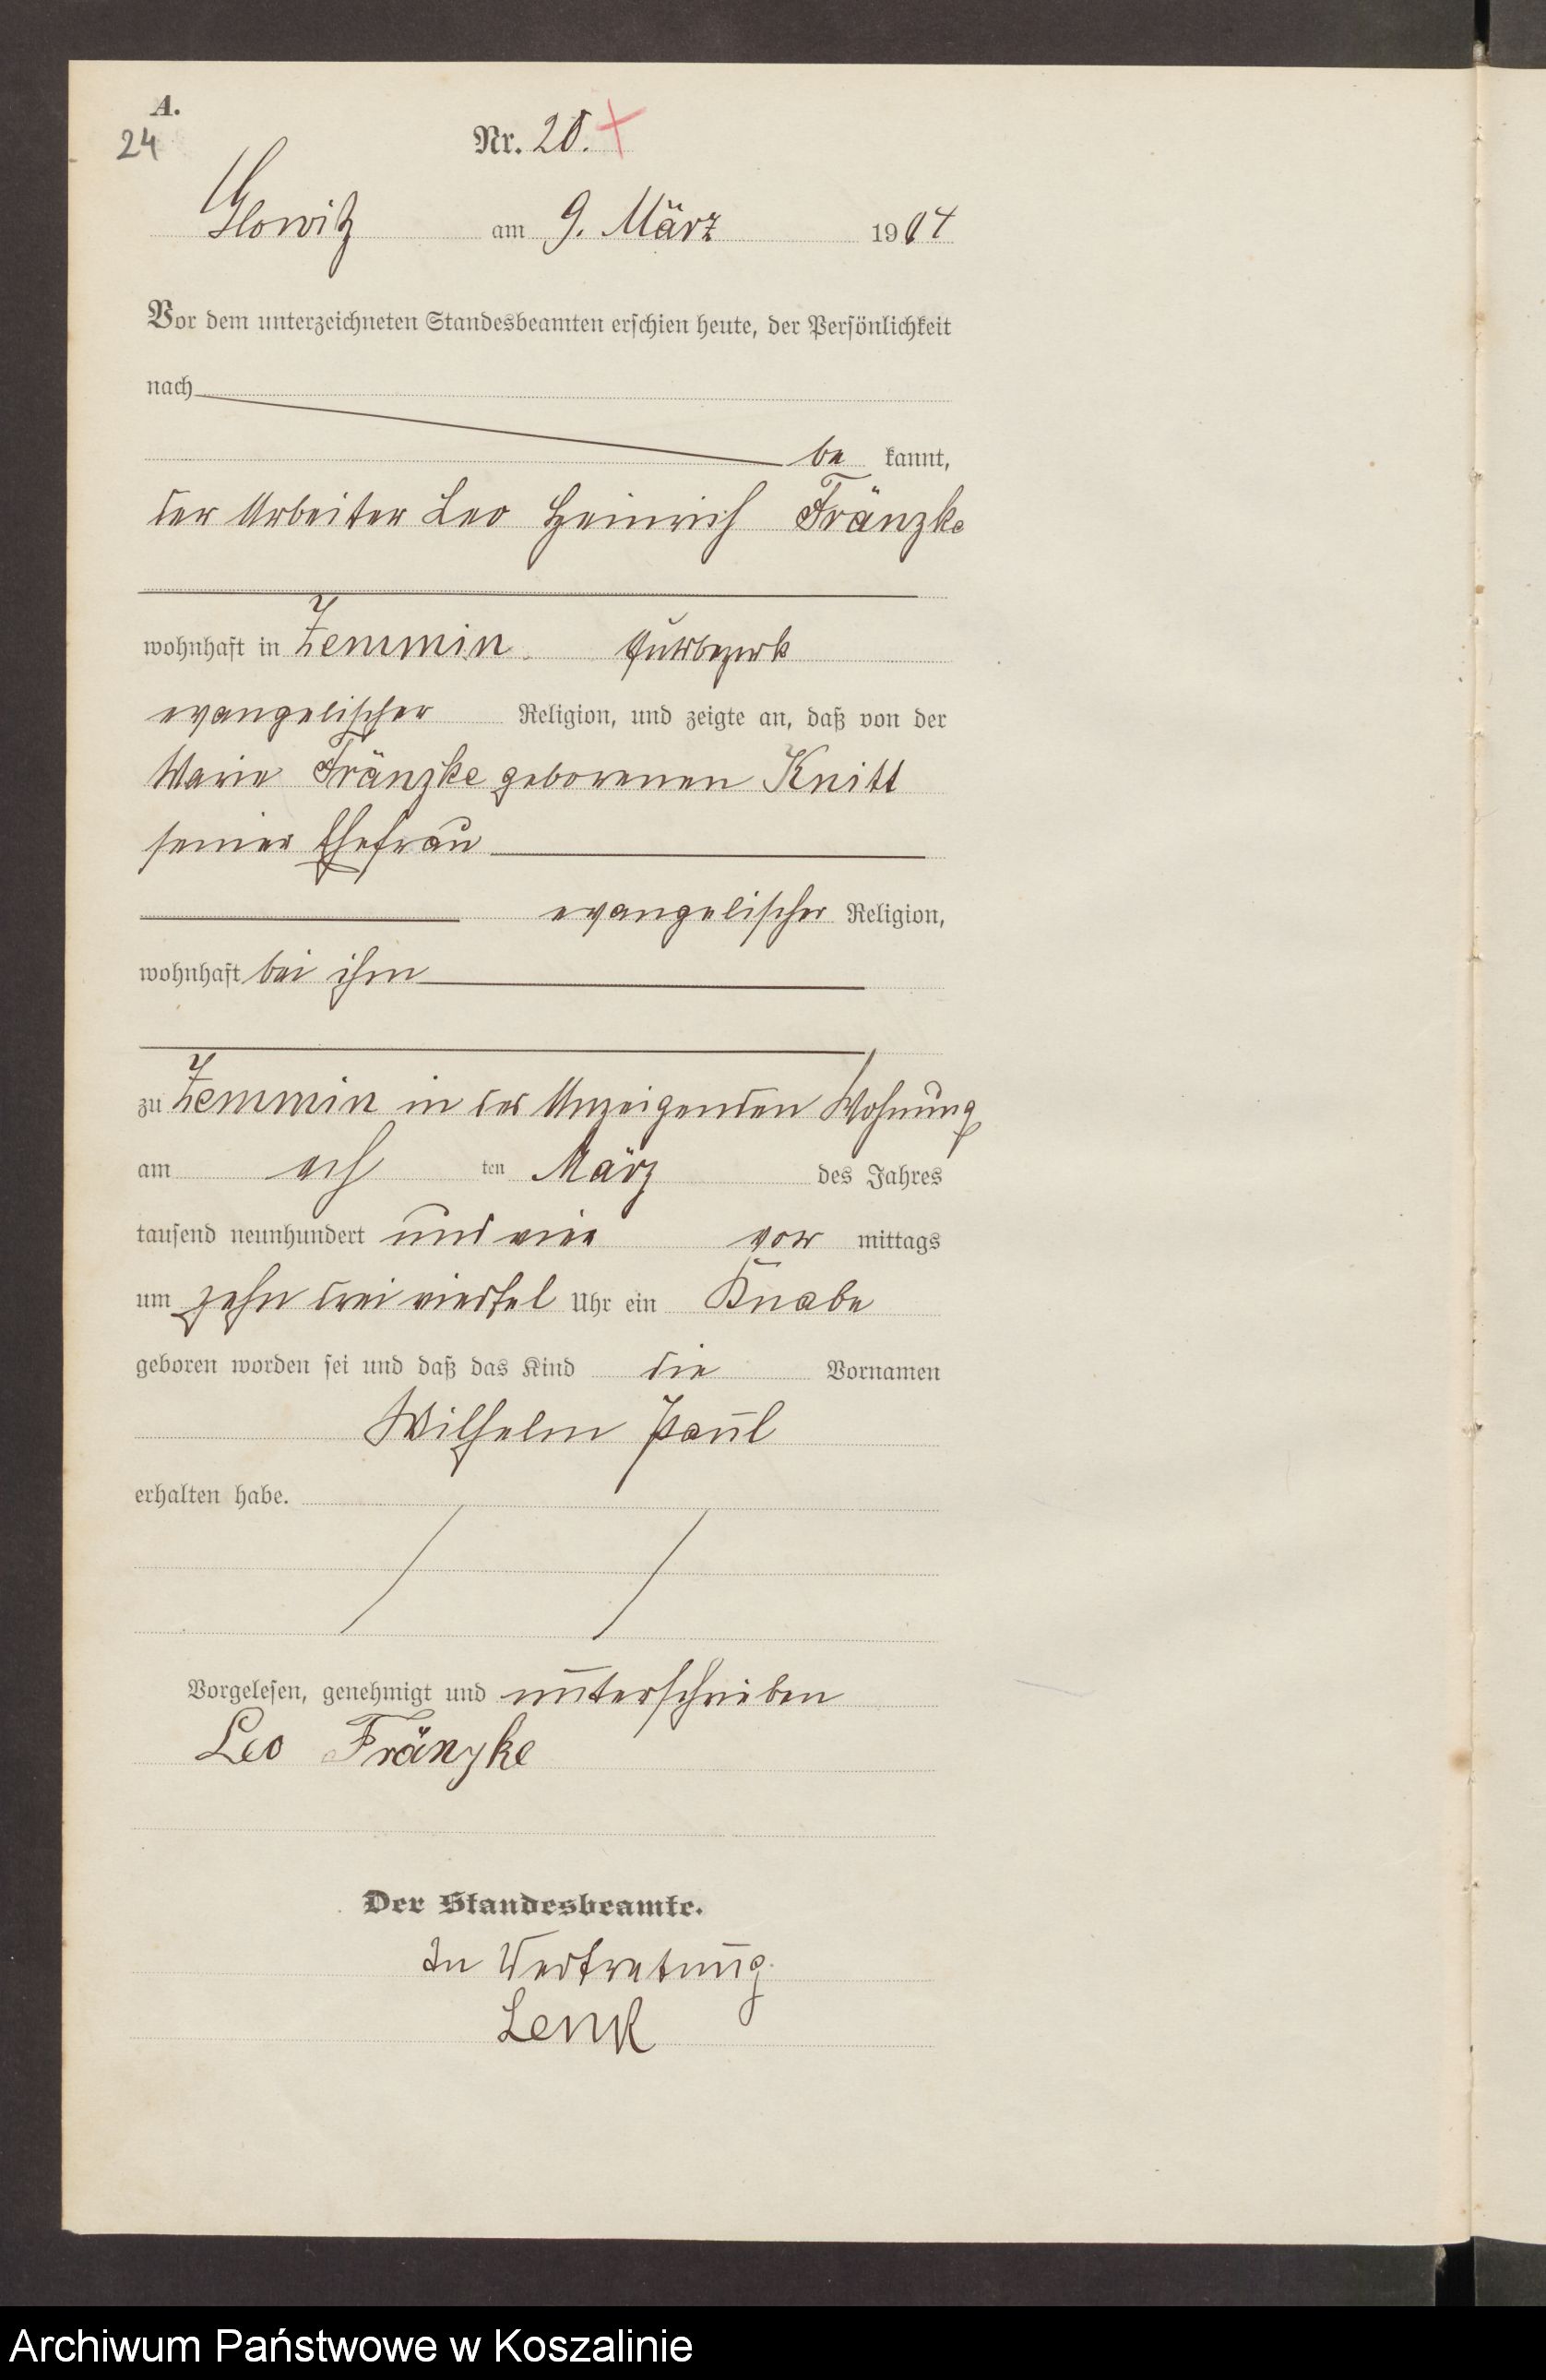 A.
24
Nr. 20.
Glowitz am 9. März 1904
Vor dem unterzeichneten Standesbeamten erschien heute, der Persönlichkeit
nach
be kannt,
der Arbeiter Leo Heinrich Fränzke
wohnhaft in Zemmin Gutsbezirk
evangelischer Religion, und zeigte an, daß von der
Marie Fränzke geborenen Knitt
seiner Ehefrau
evangelischer Religion,
wohnhaft bei ihm
zu Zemmin in des Anzeigenden Wohnung
am ach ten März des Jahres
tausend neunhundert und vier vor mittags
um zehn drei viertel Uhr ein Knabe
geboren worden sei und daß das Kind die Vornamen
Wilhelm Paul
erhalten habe.
Vorgelesen, genehmigt und unterschrieben
Leo Fränzke
Der Standesbeamte.
In Vertretung.
Lenk
Archiwum Państwowe w Koszalinie